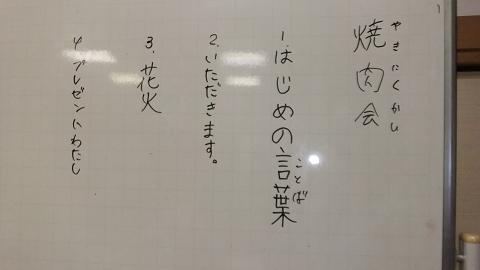 やきにくかい
焼肉会
ことば
1.はじめの言葉
2.いただきます。
3.花火
4.プレゼントわたし